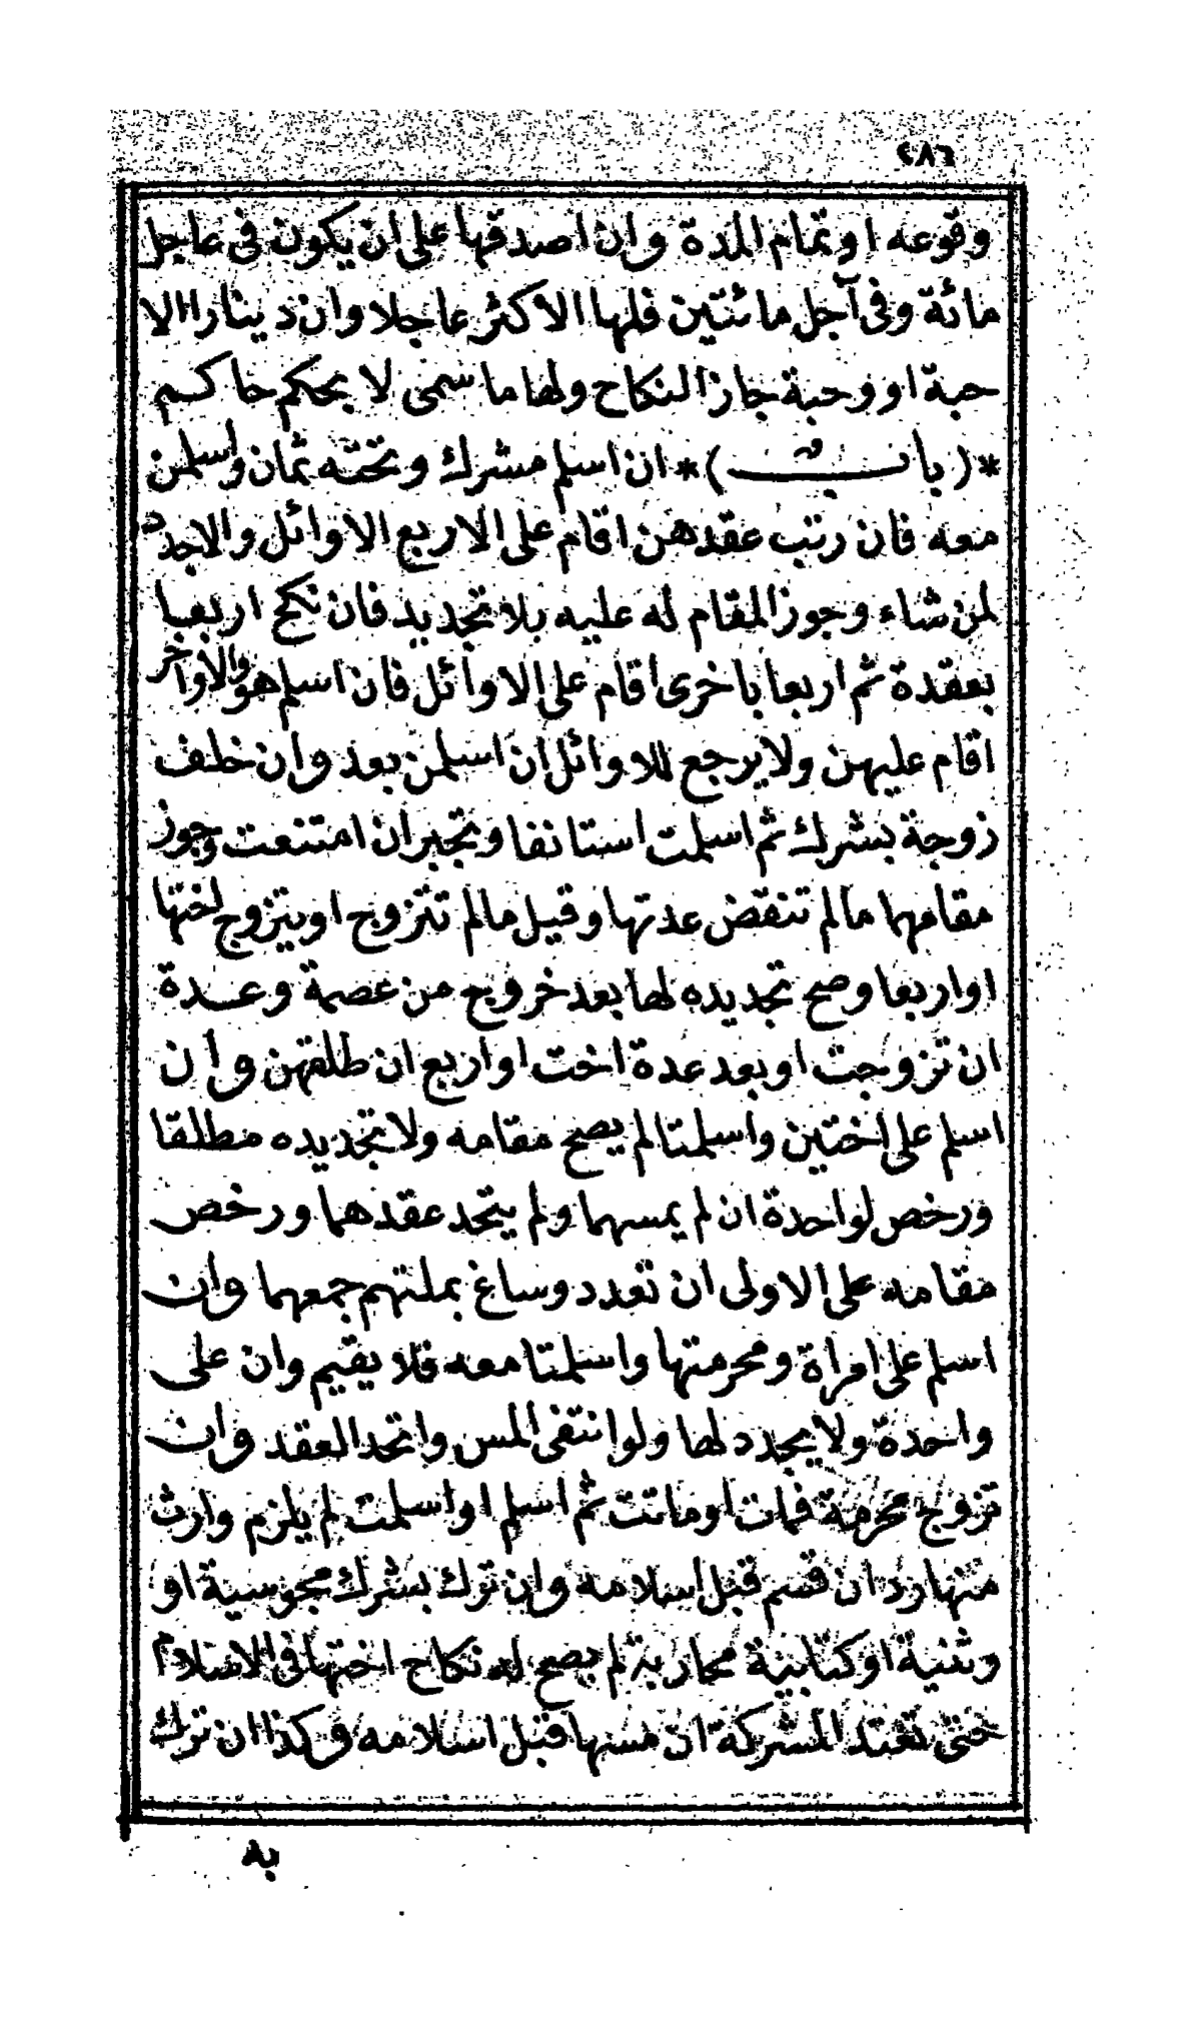 ٤٨٦
وقوعه او تمام المدة وان اصدقها على ان يكون فى عاجل
مائة وفى آجل مائتين فلها الاكثر عاجلا وان دينارا الا
حبة او وحبة جاز النكاح ولها ما سمى لا بحكم حاكم
*(باب)* ان اسلم مشرك وتحته ثمان واسلمن
معه فان رتب عقدهن اقام على الاربع الاوائل والاجدد
لمن شاء وجوز المقام له عليه بلا تجديد فان نكح اربعا
بعقدة ثم اربعا باخرى اقام على الاوائل فان اسلم هو والاواخر
اقام عليهن ولا يرجع للاوائل ان اسلمن بعد وان خلف
زوجة بشرك ثم اسلمت استانفا وتجبر ان امتنعت وجوز
مقامهما ما لم تنقض عدتها وقيل ما لم تتزوج او يتزوج اختها
او اربعا وصح تجديده لها بعد خروج من عصمة وعدة
ان تزوجت او بعد عدة اخت او اربع ان طلقهن وان
اسلم على اختين واسلمتا لم يصح مقامه ولا تجديده مطلقا
ورخص لواحدة ان لم يمسهما ولم يتحد عقدهما ورخص
مقامه على الاولى ان تعدد وساغ بملتهم جمعهما وان
اسلم على امراة ومحرمتها واسلمتا معه فلا يقيم وان على
واحدة ولا يجدد لها ولو انتفى المس واتحد العقد وان
تزوج محرمة فمات او ماتت ثم اسلم او اسلمت لم يلزم وارث
منهما رد ان قسم قبل اسلامه وان ترك بشرك مجوسية او
وثنية او كتابية محاربة لم يصح له نكاح اختها فى الاسلام
حتى تعتد المشركة ان مسها قبل اسلامه وكذا ان ترك